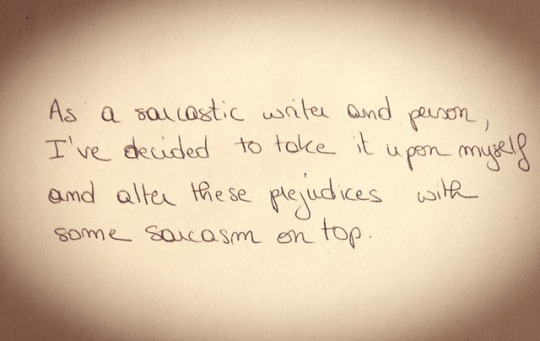 As a sarcastic writer and person,
I've decided to take it upon myself
and alter these prejudices with
some sarcasm on top.